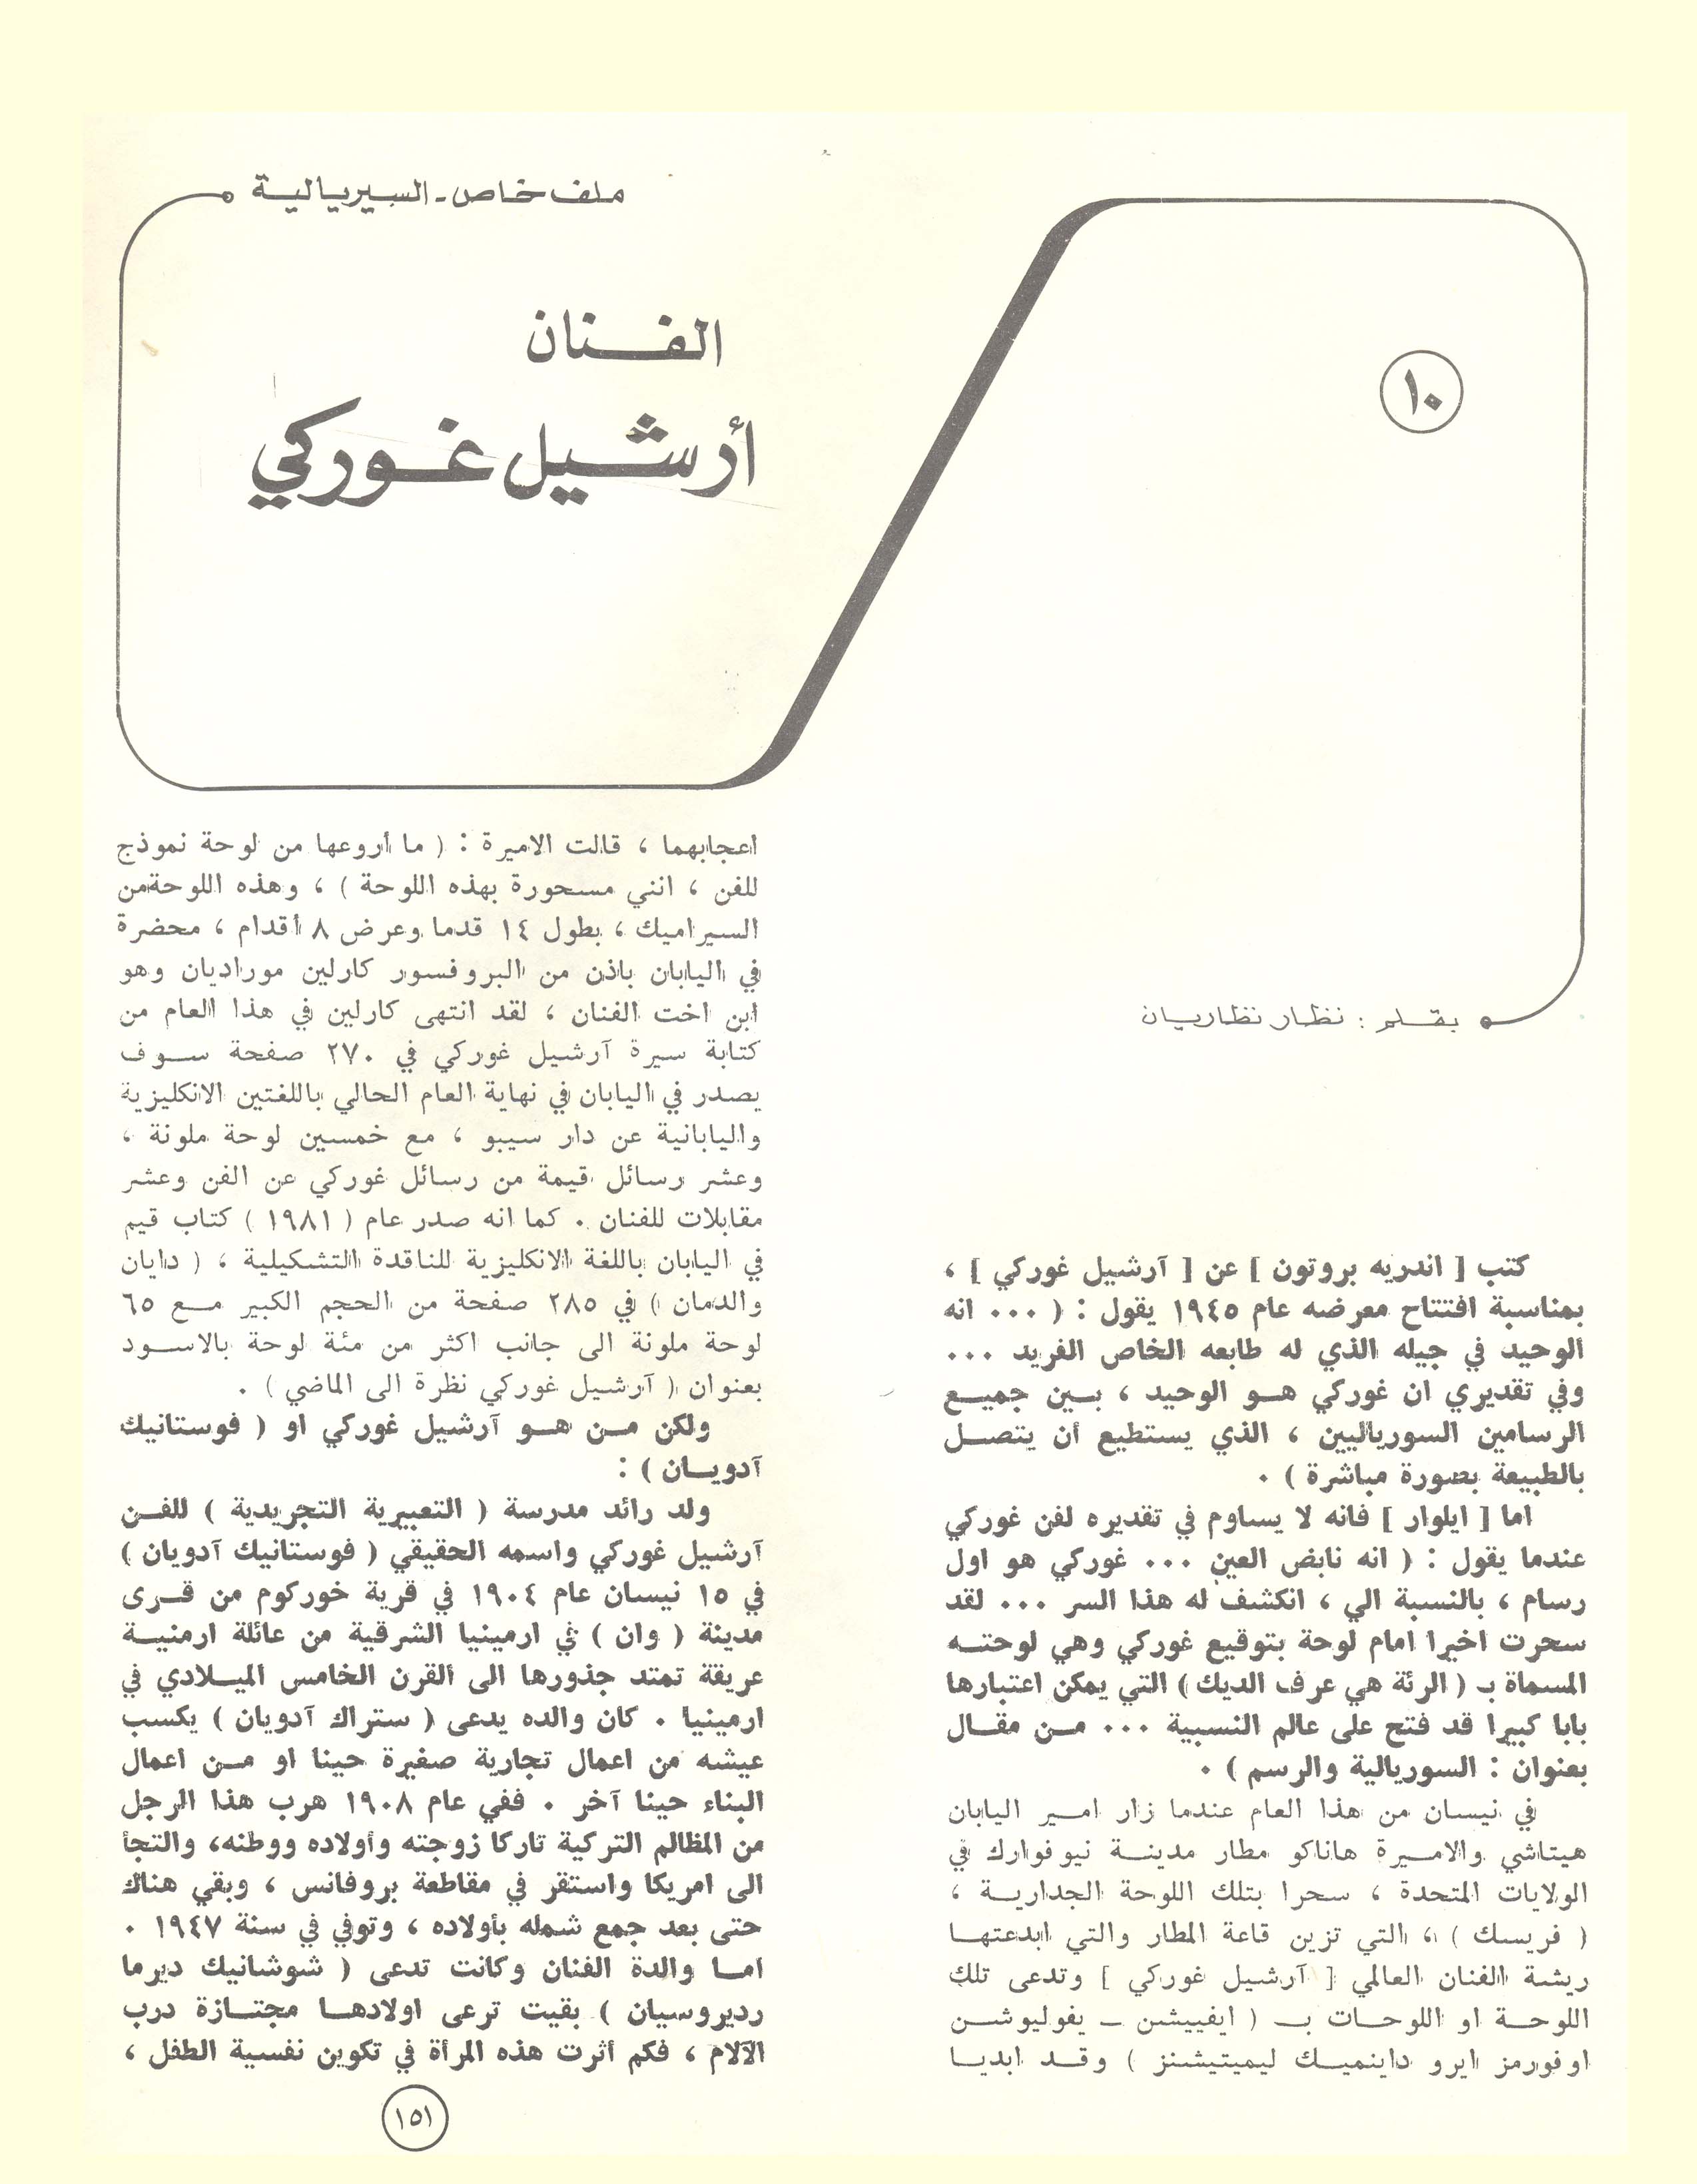 ملف خاص - السيريالية
١٠
الفنان
أرشيل غوركي
بقلم : نظار نظاريان
كتب [ اندريه بروتون ] عن [ آرشيل غوركي ] ،
بمناسبة افتتاح معرضه عام ١٩٤٥ يقول : ( ... انه
الوحيد في جيله الذي له طابعه الخاص الفريد ...
وفي تقديري ان غوركي هو الوحيد ، بين جميع
الرسامين السورياليين ، الذي يستطيع أن يتصل
بالطبيعة بصورة مباشرة ) .
اما [ ايلوار ] فانه لا يساوم في تقديره لفن غوركي
عندما يقول : ( انه نابض العين ... غوركي هو اول
رسام ، بالنسبة الي ، انكشف له هذا السر ... لقد
سحرت اخيرا امام لوحة بتوقيع غوركي وهي لوحته
المسماة بـ ( الرئة هي عرف الديك ) التي يمكن اعتبارها
بابا كبيرا قد فتح على عالم النسبية ... من مقال
بعنوان : السوريالية والرسم ) .
في نيسان من هذا العام عندما زار امير اليابان
هيتاشي والاميرة هاناكو مطار مدينة نيوفوارك في
الولايات المتحدة ، سحرا بتلك اللوحة الجدارية ،
( فريسك ) ، التي تزين قاعة المطار والتي ابدعتها
ريشة الفنان العالمي [ آرشيل غوركي ] وتدعى تلك
اللوحة او اللوحات بـ ( ايفييشن ـ يفوليوشن
اوفورمز ايرو داينميك ليميتيشنز ) وقد ابديا
اعجابهما ، قالت الاميرة : ( ما أروعها من لوحة نموذج
للفن ، انني مسحورة بهذه اللوحة ) ، وهذه اللوحة من
السيراميك ، بطول ١٤ قدما وعرض ٨ أقدام ، محضرة
في اليابان باذن من البروفسور كارلين موراديان وهو
ابن اخت الفنان ، لقد انتهى كارلين في هذا العام من
كتابة سيرة آرشيل غوركي في ٢٧٠ صفحة سوف
يصدر في اليابان في نهاية العام الحالي باللغتين الانكليزية
واليابانية عن دار سيبو ، مع خمسين لوحة ملونة ،
وعشر رسائل قيمة من رسائل غوركي عن الفن وعشر
مقابلات للفنان . كما انه صدر عام ( ١٩٨١ ) كتاب قيم
في اليابان باللغة الانكليزية للناقدة التشكيلية ، ( دايان
والدمان ) في ٢٨٥ صفحة من الحجم الكبير مع ٦٥
لوحة ملونة الى جانب اكثر من مئة لوحة بالاسود
بعنوان ( آرشيل غوركي نظرة الى الماضي ) .
ولكن من هو آرشيل غوركي او ( فوستانيك
آدويان ) :
ولد رائد مدرسة ( التعبيرية التجريدية ) للفن
آرشيل غوركي واسمه الحقيقي ( فوستانيك آدويان )
في ١٥ نيسان عام ١٩٠٤ في قرية خوركوم من قرى
مدينة ( وان ) في ارمينيا الشرقية من عائلة ارمنية
عريقة تمتد جذورها الى القرن الخامس الميلادي في
ارمينيا . كان والده يدعى ( ستراك آدويان ) يكسب
عيشه من اعمال تجارية صغيرة حينا او من اعمال
البناء حينا آخر . ففي عام ١٩٠٨ هرب هذا الرجل
من المظالم التركية تاركا زوجته وأولاده ووطنه، والتجأ
الى امريكا واستقر في مقاطعة بروفانس ، وبقي هناك
حتى بعد جمع شمله بأولاده ، وتوفي في سنة ١٩٤٧ .
اما والدة الفنان وكانت تدعى ( شوشانيك ديرما
رديروسيان ) بقيت ترعى اولادها مجتازة درب
الآلام ، فكم أثرت هذه المرأة في تكوين نفسية الطفل ،
١٥١